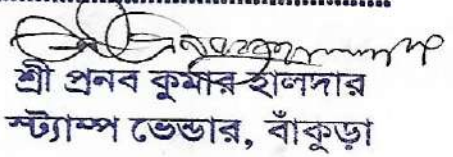 শ্রী প্রনব কুমার হালদার
স্ট্যাম্প ভেন্ডার, বাঁকুড়া